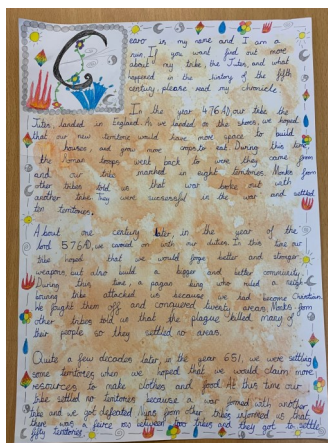 C
earo is my name and I am a
nun. If you want find out more
about my tribe, the Jutes, and what
happened in the history of the fifth
century, please read my chronicle
In the year 476 AD, our tribe the
Jutes, landed in England. As we landed on the shores, we hoped
that our new territory would have more space to build
houses, and grow more crops to eat. During this time
the Roman troops went back to where they came from
and our tribe marched in eight territories. Monks from
other tribes told us that war broke out with
another tribe they were successful in the war and settled
ten territories.
About one century later, in the year of the
lord 576 AD, we carried on with our duties. In this time our
tribe hoped that we would forge better and stronger
weapons, but also build a bigger and better community.
During this time, a pagan king who ruled a neigh-
bouring tribe attacked us because we had become Christian.
We fought them off and conquered twenty areas. Monks from
other tribes told us that the plague killed many of
their people so they settled no areas.
Quite a few decades later, in the year 651, we were settling
some territories when we hoped that we would claim more
resources to make clothes and food. At this time our
tribe settled no territories because a war formed with another
tribe and we got defeated from other tribes informed us that
there was a fierce between two tribes and they got to settle
fifty territories.